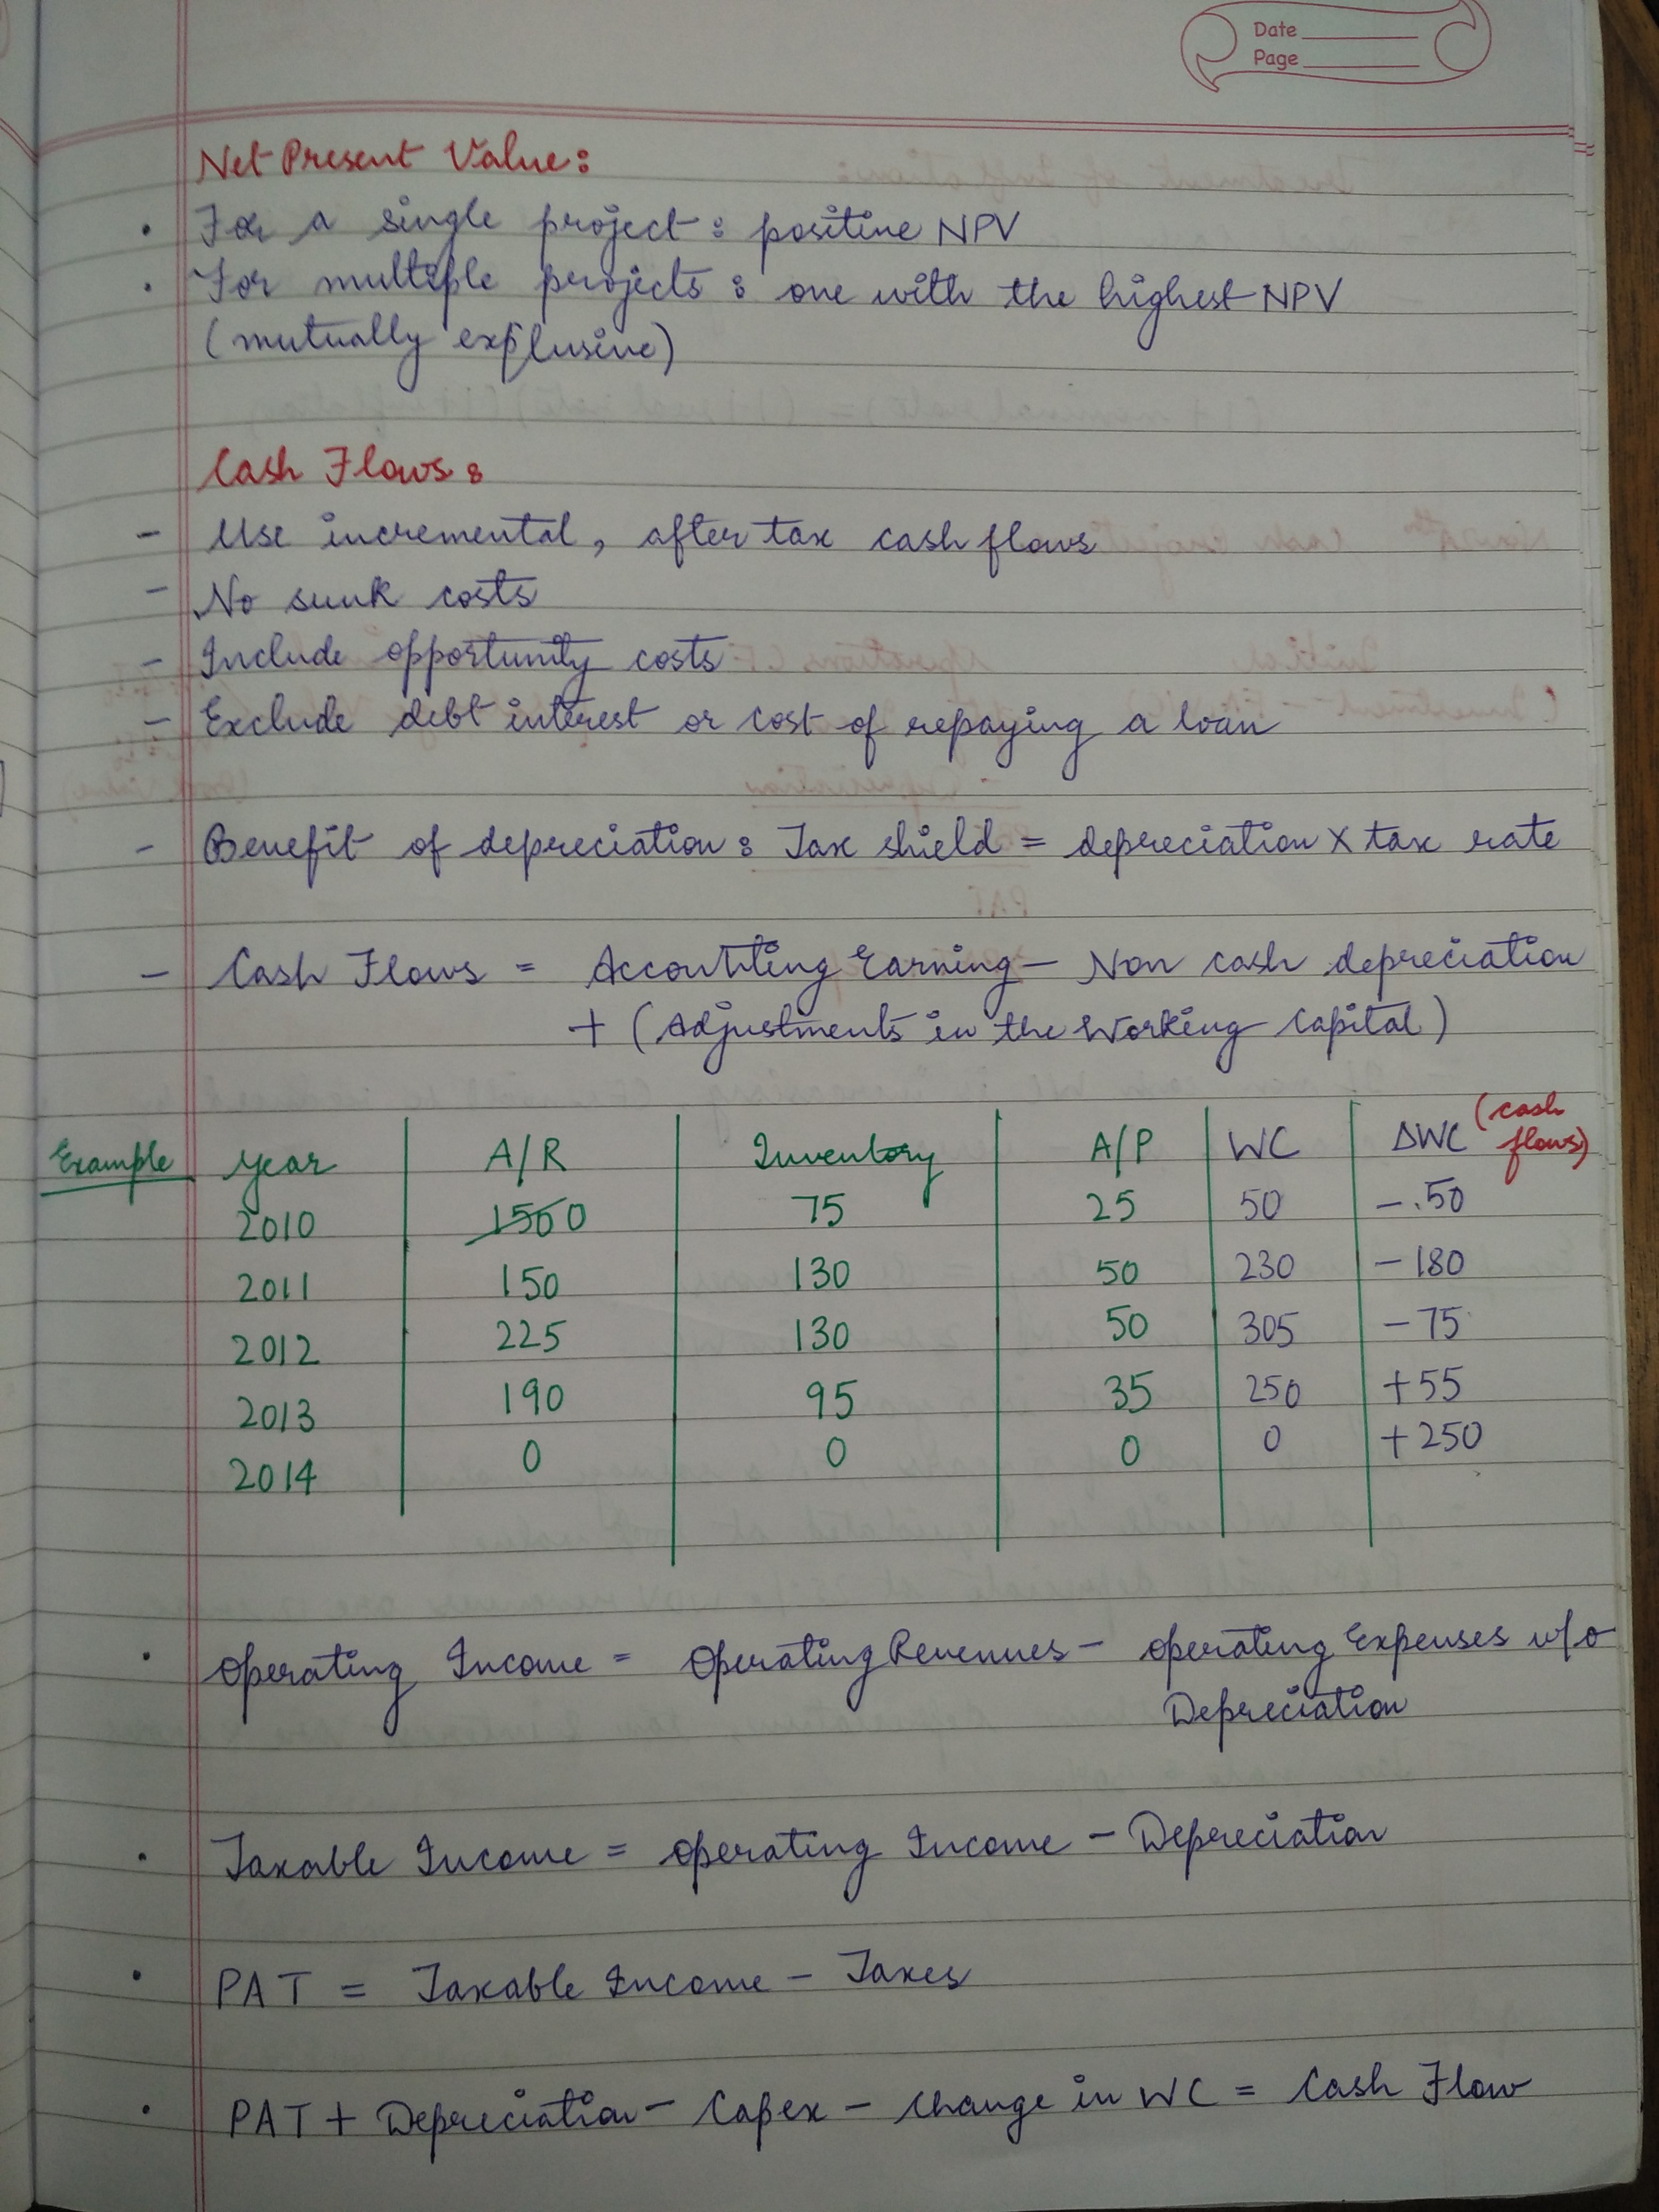 Date
Page
Net Present Value:
· For a single project : positive NPV
· For multiple projects : one with the highest NPV
(mutually explusive)
Cash Flows :
- Use incremental, after tax cash flows
- No sunk costs
- Include opportunity costs
- Exclude debt interest or cost of repaying a loan
- Benefit of depreciation : Tax shield = depreciation X tax rate
- Cash Flows = Accounting Earning - Non cash depreciation
+ (Adjustments in the Working Capital)
Example year A/R Inventory A/P WC ΔWC (cash flows)
2010 0 75 25 50 -.50
2011 150 130 50 230 -180
2012 225 130 50 305 -75
2013 190 95 35 250 +55
2014 0 0 0 0 +250
· Operating Income = Operating Revenues - Operating Expenses w/o
Depreciation
· Taxable Income = Operating Income - Depreciation
· PAT = Taxable Income - Taxes
· PAT + Depreciation - Capex - Change in WC = Cash Flow